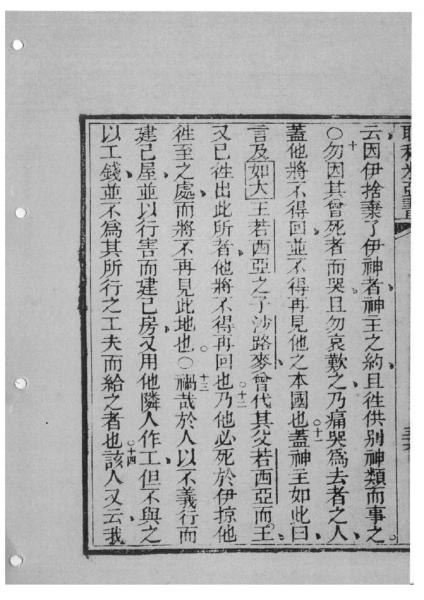 云因伊捨棄了伊神者神王之約且徃供别神類而事之
十
〇勿因其曾死者而哭且勿哀歎之乃痛哭爲去者之人
蓋他將不得回並不得再見他之本國也蓋神王如此曰
十一
言及如大王若西亞之子沙路麥曾代其父若西亞而王
又已徃出此所者他將不得再回也乃他必死於伊掠他
十二
徃至之處而將不再見此地也〇禍哉於人以不義行而
十三
建己屋並以行害而建己房又用他隣人作工但不與之
以工錢並不爲其所行之工夫而給之者也該人又云我
十四